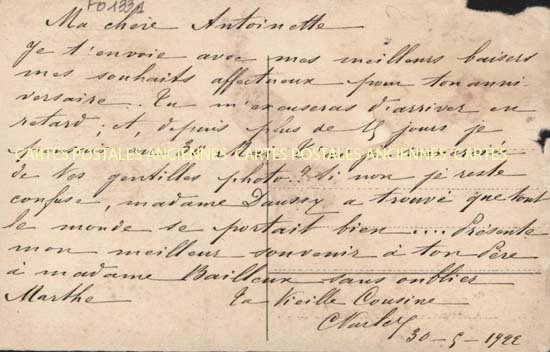 FO1331
Ma chère Antoinette
Je t'envoie avec mes meilleurs baisers
mes souhaits affectueux pour ton anni-
versaire. Tu m'excuseras d'arriver en
retard; et, depuis plus de 15 jours je
CARTES POSTALES ANCIENNES CARTES POSTALES ANCIENNES CARTES
de vos gentilles photo. Si non je reste
confuse, madame Daussy a trouvé que tout
le monde se portait bien .... Présente
mon meilleur souvenir à ton Père
à madame Bailleux sans oublier
Marthe Ta Vieille Cousine
30-5-1922